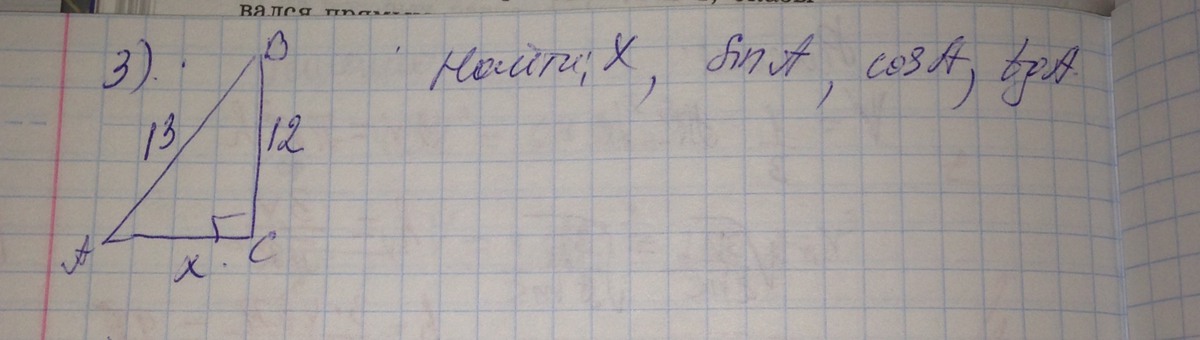 вался
3). В Найти; X, sin A, cos A, tg A.
13 12
А С
x